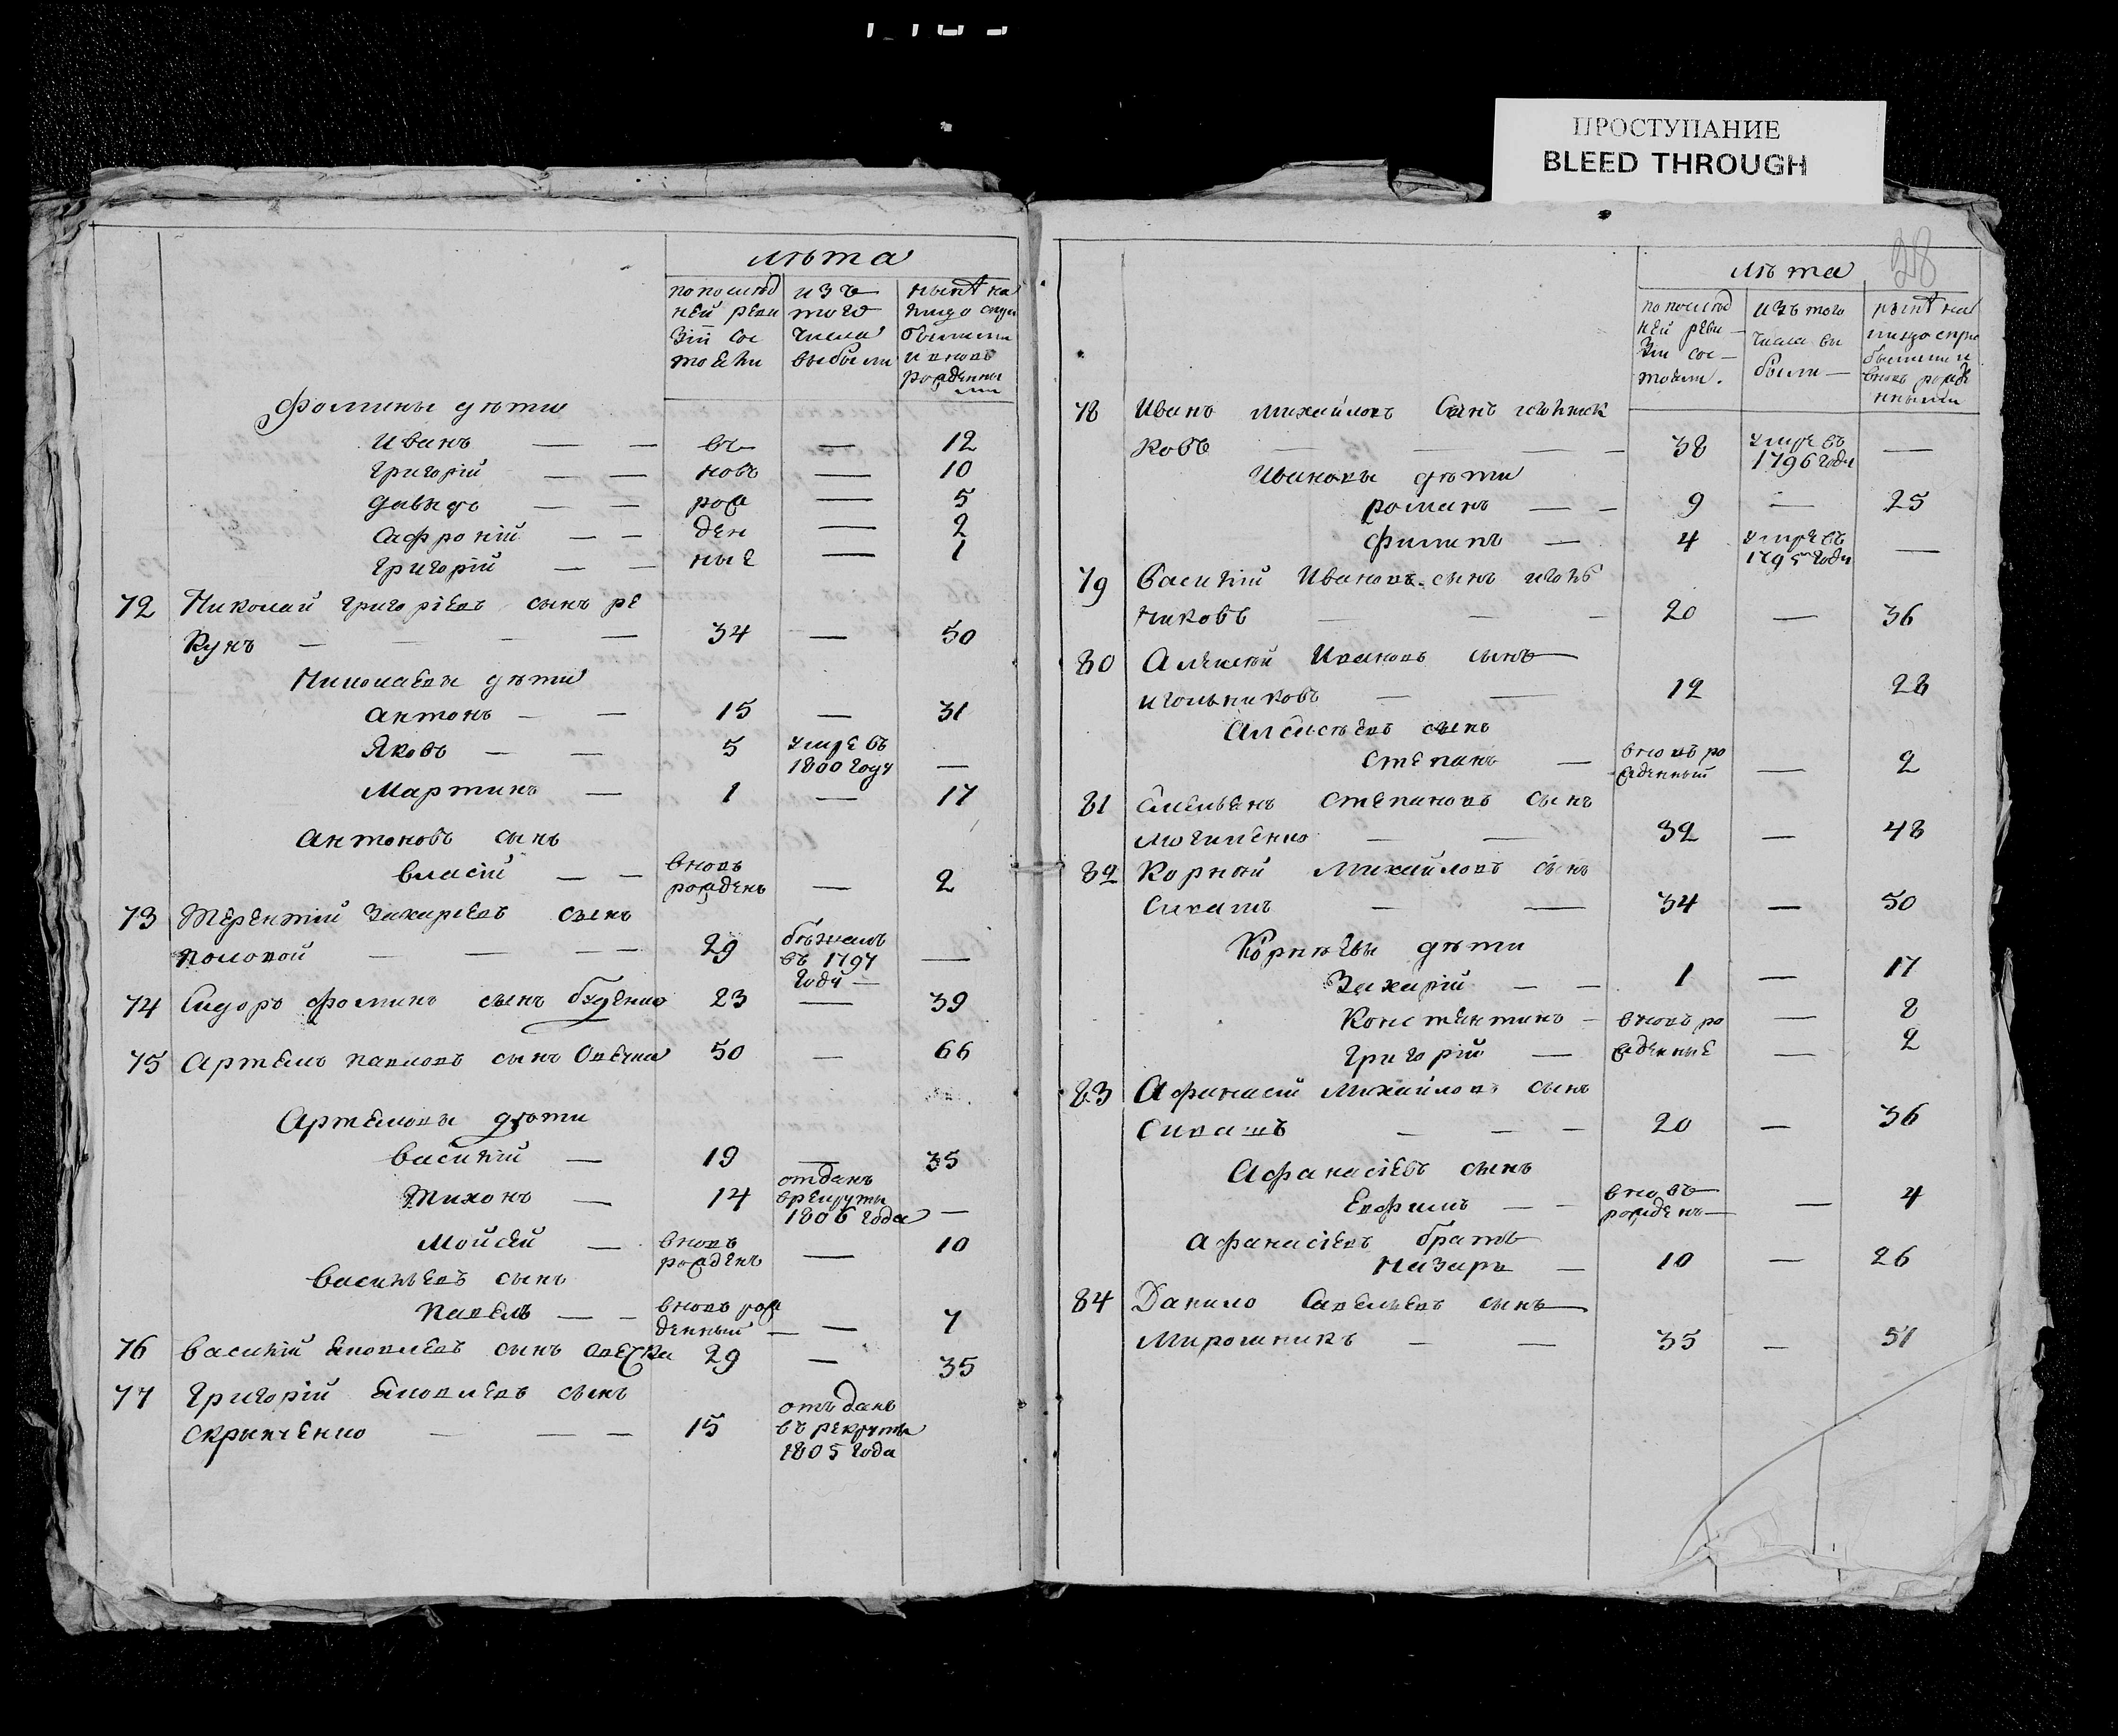 ПРОСТУПАНИЕ
BLEED THROUGH
лѣта
по послѣд изъ нынѣ на
ней реви того лицо съ при
зіи сос числа былыми
тояли выбыли и вновь
рожденны
ми
Фомины дѣти
Иванъ — — въ — 12
Григорій — — новъ — 10
Давыдъ — — рож — 5
Сафроній — — ден — 2
Григорій — — ные — 1
72 Николай Григоріевъ сынъ ре
кунъ — — — — 34 — 50
Николаевы дѣти
Антонъ — — 15 — 31
Яковъ — — 5 умре въ
1800 году —
Мартинъ — 1 — 17
Антоновъ сынъ
Власій — — вновь
рожденъ — 2
73 Терентій Захарьевъ сынъ
половой — — — 29 бѣжалъ
въ 1797 —
году —
74 Сидоръ Фоминъ сынъ буденко 23 — 39
75 Артемъ павловъ сынъ Овечка 50 — 66
Артемовы дѣти
Василій — 19 — 35
Тихонъ — 14 отданъ
в рекруты
1806 года —
Мойсей — вновь
рожденъ — 10
Васильевъ сынъ
Павелъ — — вновь рож
денный — — 7
76 Василій Яковлевъ сынъ овечка 29 — 35
77 Григорій Яковлевъ сынъ
Скрипченко — — — 15 отъдань
въ рекруты
1805 года
28
лѣта
по послѣд изъ того нынѣ на
ней реви — числа вы лицо съ при
зіи сос — были — былыми и
тояли. вновь рожде
нными
78 Иванъ михайловъ Сынъ игольник
ковъ — — — 38 умре въ
1796 году —
Ивановы дѣти
романъ — — 9 — 25
филипъ — 4 умре въ
1795 году —
79 Василій Ивановъ сынъ иголь
никовъ — — — 20 — 36
80 Алексѣй Ивановъ сынъ
игольниковъ — — 12 28
Алексѣевъ сынъ
Степанъ — вновь ро
жденный — 2
81 Емельянъ Степановъ сынъ
Могиленко — — 32 — 48
82 Корнѣй Михайловъ сынъ
Сивашъ — — 34 — 50
Корнѣевы дѣти
Захарій — — 1 — 17
Константинъ — вновь ро — 8
Григорій — жденные — 2
83 Афанасій Михайловъ сынъ
Сивашъ — — — 20 — 36
Афанасіевъ сынъ
Ефимъ — — вновь —
рожденъ — — 4
Афанасіевъ братъ
Назаръ — 10 — 26
84 Данило Савельевъ сынъ
Мирошникъ — — 35 — 51